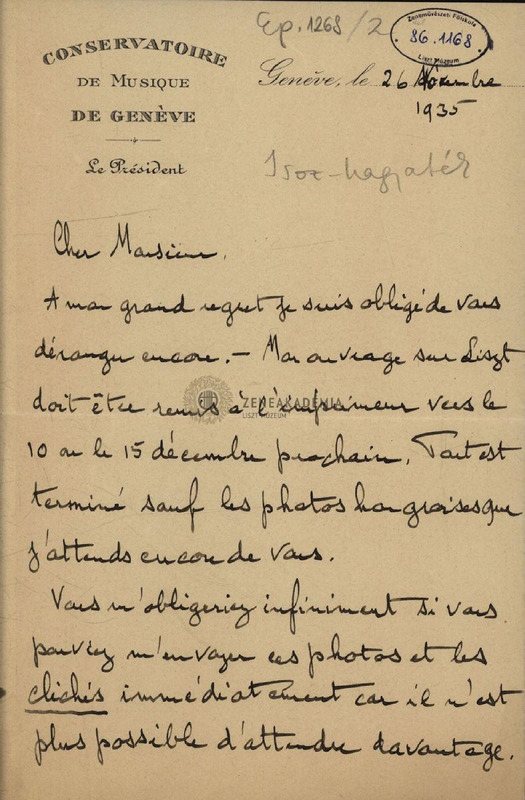 Ep. 1268/2
Zeneművészeti Főiskola
86.1168.
Liszt Múzeum
CONSERVATOIRE
DE MUSIQUE
DE GENÈVE
Le Président
Genève, le 26 Novembre
1935
Isoz-hagyaték
Cher Monsieur,
A mon grand regret je suis obligé de vous
déranger encore. – Mon ouvrage sur Liszt
doit être remis à l'imprimeur vers le
10 ou le 15 décembre prochain. Tout est
terminé sauf les photos hongroises que
j'attends encore de vous.
Vous m'obligeriez infiniment si vous
pouviez m'envoyer ces photos et les
clichés immédiatement car il n'est
plus possible d'attendre davantage.
ZENEAKADÉMIA
LISZT MÚZEUM